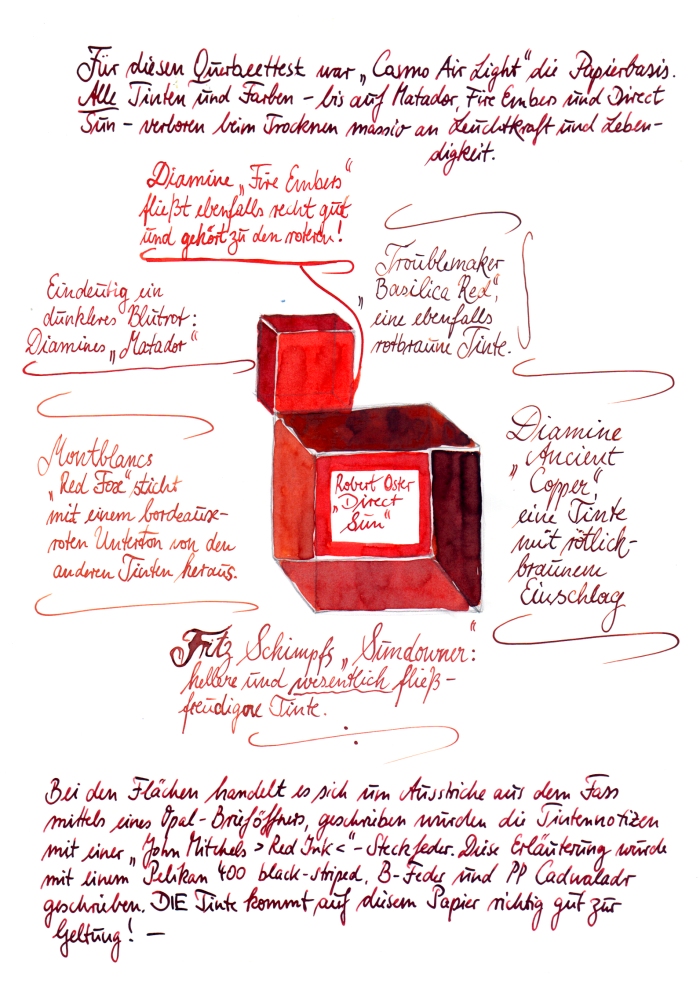 Für diesen Querbeettest war „Cosmo Air Light“ die Papierbasis.
Alle Tinten und Farben – bis auf Matador, Fire Embers und Direct
Sun – verloren beim Trocknen massiv an Leuchtkraft und Leben-
digkeit.
Diamine „Fire Embers“
fließt ebenfalls recht gut
und gehört zu den roteren!
Troublemaker
„Basilica Red“,
eine ebenfalls
rotbraune Tinte.
Eindeutig ein
dunkleres Blutrot:
Diamines „Matador“
Montblancs
„Red Fox“ sticht
mit einem bordeaux-
roten Unterton von den
anderen Tinten heraus.
Robert Oster
„Direct
Sun“
Diamine
„Ancient
Copper“,
eine Tinte
mit rötlich-
braunem
Einschlag
Fritz Schimpfs „Sundowner“:
hellere und wesentlich fließ-
freudigere Tinte.
Bei den Flächen handelt es sich um Ausstriche aus dem Fass
mittels eines Opal-Brieföffners, geschrieben wurden die Tintennotizen
mit einer „John Mitchels >Red Ink<“-Steckfeder. Diese Erläuterung wurde
mit einem Pelikan 400 black-striped, B-Feder und PP Cadwaladr
geschrieben. DIE Tinte kommt auf diesem Papier richtig gut zur
Geltung! –